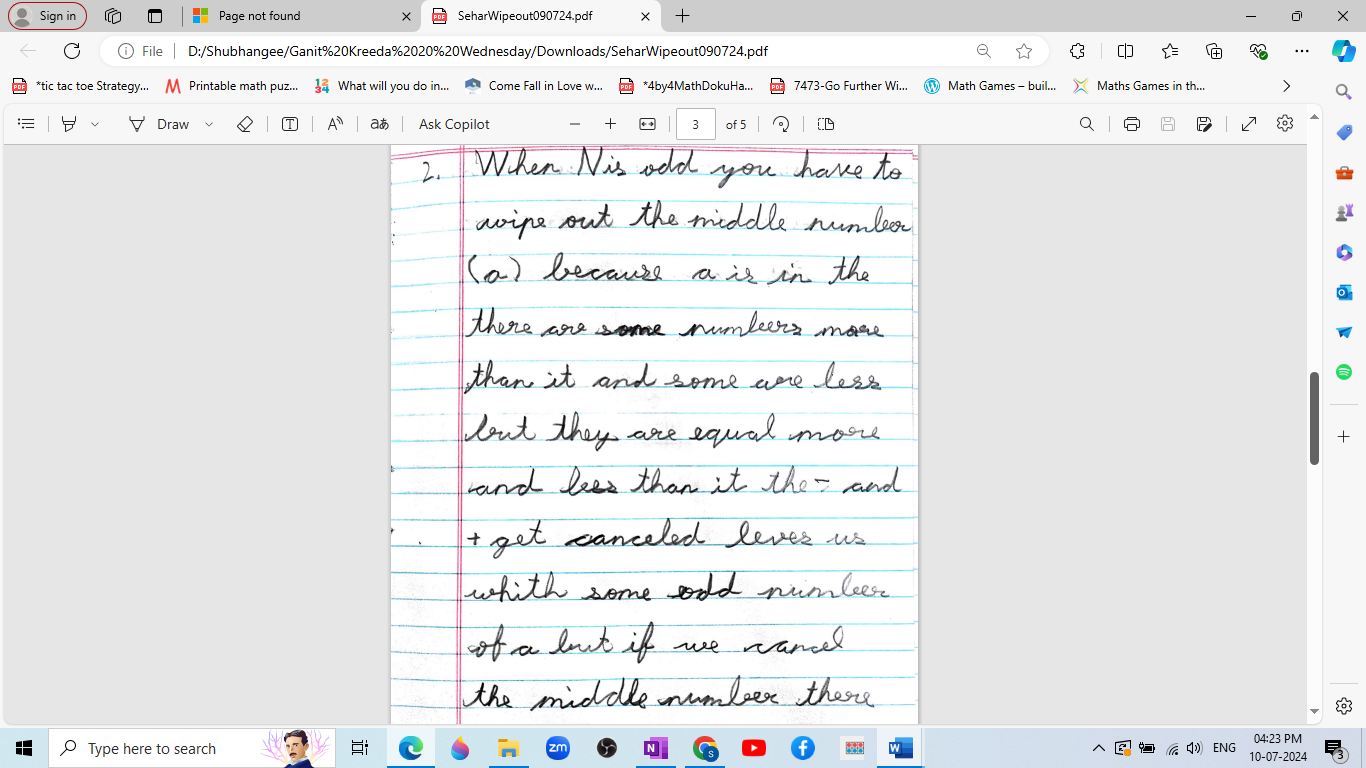 Sign in
Page not found
SeharWipeout090724.pdf
File
D:/Shubhangee/Ganit%20Kreeda%2020%20Wednesday/Downloads/SeharWipeout090724.pdf
*tic tac toe Strategy...
Printable math puz...
What will you do in...
Come Fall in Love w...
*4by4MathDokuHa...
7473-Go Further Wi...
Math Games – buil...
Maths Games in th...
Draw
Ask Copilot
3
of 5
2. When N is odd you have to
wipe out the middle number
(a) because a is in the
there are some numbers more
than it and some are less
but they are equal more
and less than it the - and
+ get canceled leves us
whith some odd number
of a but if we cancel
the middle number there
Type here to search
ENG
04:23 PM
10-07-2024
3